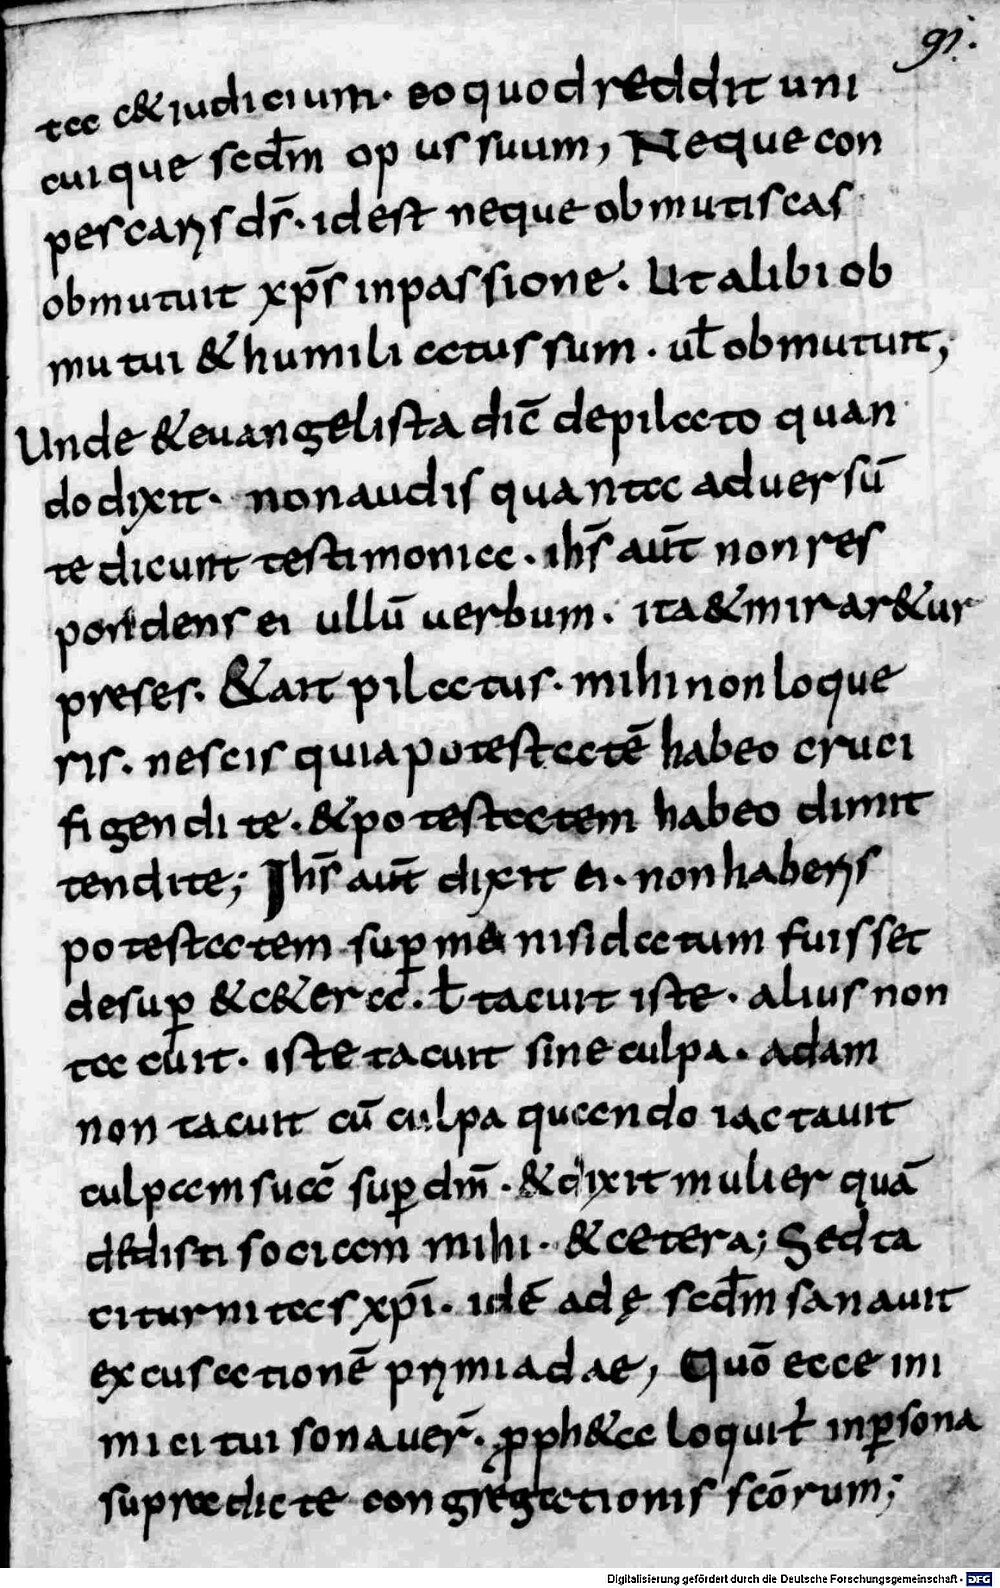 91.
tac &iudicium. eo quod reddit uni
cuique scđm op us suum, Neque con
pescaris dſ̄. id est neque obmutiscas
obmutuit xp̄s inpassione. Ut alibi ob
mutui & humiliatus sum. ul̄ obmutuit,
Unde &euangelista dic̄ depilato quan
do dixit. non audis quanta aduersū
te dicunt testimonia. ih̄s aut̄ non res
pondens ei ullū uerbum. ita&mirar&ur
preses. &ait pilatus. mihi non loque
ris. nescis quia potestatē habeo cruci
figendi te. &potestatem habeo dimit
tendi te; Ih̄s aut̄ dixit ei. non haberis
potestatem sup̱ me nisi datum fuisset
desup̱ &c&era. ł tacuit iste. alius non
tacuit. iste tacuit sine culpa. adam
non tacuit cū culpa quando iactauit
culpam suā sup̱ dm̄. &dixit mulier quā
dedisti sociam mihi. &cetera; Sed ta
citurnitas xp̄i. idē adę scđm sanauit
excusationē primi adae, Quō ecce ini
mici tui sonauer̄. ꝓph&a loquit̄ inp̱sona
supradicte congregationis scōrum;
Digitalisierung gefördert durch die Deutsche Forschungsgemeinschaft - DFG